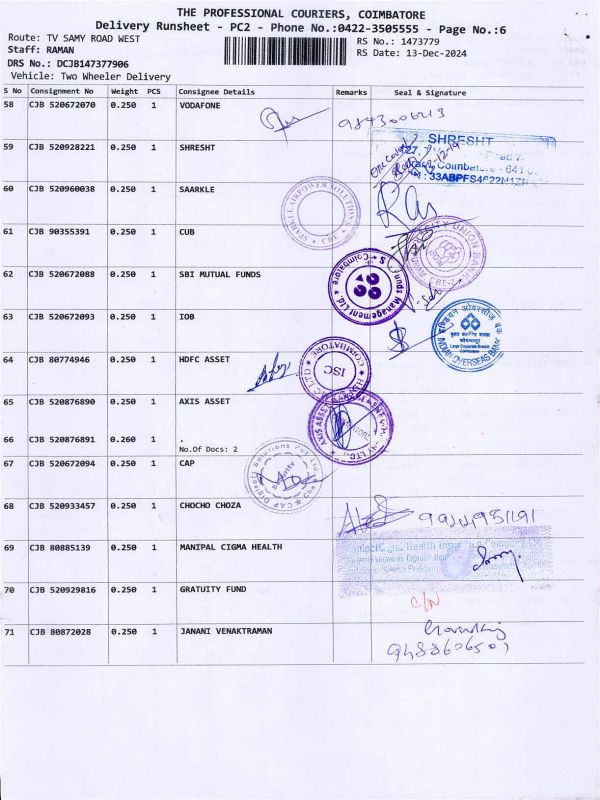 THE PROFESSIONAL COURIERS, COIMBATORE
Delivery Runsheet - PC2 - Phone No.:0422-3505555 - Page No.:6
Route: TV SAMY ROAD WEST
RS No.: 1473779
Staff: RAMAN
RS Date: 13-Dec-2024
DRS No.: DCJB147377906
Vehicle: Two Wheeler Delivery
S No Consignment No Weight PCS Consignee Details Remarks Seal & Signature
58 CJB 520672070 0.250 1 VODAFONE
9843006213
59 CJB 520928221 0.250 1 SHRESHT
SHRESHT
Coimbatore - 641
33ABPFS4622N1ZP
60 CJB 520960038 0.250 1 SAARKLE
61 CJB 90355391 0.250 1 CUB
62 CJB 520672088 0.250 1 SBI MUTUAL FUNDS
S Funds Management Ltd. Coimbatore
63 CJB 520672093 0.250 1 IOB
INDIAN OVERSEAS BANK
64 CJB 80774946 0.250 1 HDFC ASSET
COIMBATORE
ISC
65 CJB 520876890 0.250 1 AXIS ASSET
AXIS ASSET
66 CJB 520876891 0.260 1 .
No.Of Docs: 2
67 CJB 520672094 0.250 1 CAP
CAP Digisoft Solutions Pvt Ltd
Security
68 CJB 520933457 0.250 1 CHOCHO CHOZA
69 CJB 80885139 0.250 1 MANIPAL CIGMA HEALTH
70 CJB 520929816 0.250 1 GRATUITY FUND
C/N
71 CJB 80872028 0.250 1 JANANI VENAKTRAMAN